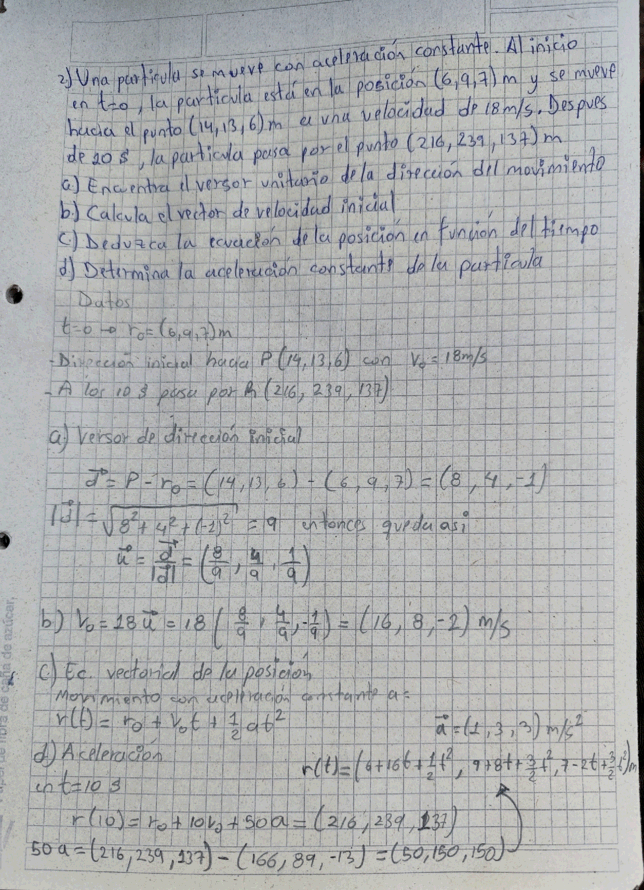 2) Una particula se mueve con aceleración constante. Al inicio
en t=0, la particula está en la posición (6,9,7) m y se mueve
hacia el punto (14,13,6) m a una velocidad de 18 m/s. Despues
de 10 s, la particula pasa por el punto (216,239,137) m
a) Encuentra el versor unitario de la dirección del movimiento
b) Calcula el vector de velocidad inicial
c) Deduzca la ecuación de la posición en función del tiempo
d) Determina la aceleración constante de la partícula
Datos
t=0 → r₀=(6,9,7)m
- Dirección inicial hacia P(14,13,6) con V₀=18m/s
- A los 10 s pasa por (216,239,137)
a) Versor de dirección inicial
d⃗=P-r₀=(14,13,6)-(6,9,7)=(8,4,-1)
|d⃗|=√8²+4²+(-1)² =9 entonces queda asi
u⃗=d⃗/|d⃗|=(8/9,4/9,1/9)
b) V₀=18u⃗=18(8/9,4/9,-1/9)=(16,8,-2) m/s
c) Ec. vectorial de la posición
Movimiento con aceleración constante a:
r(t)=r₀+V₀t+1/2at²
a⃗=(1,3,3) m/s²
d) Aceleración
r(t)=(6+16t+1/2t², 9+8t+3/2t², 7-2t+3/2t²)m
en t=10 s
r(10)=r₀+10v₀+50a=(216,239,137)
50a=(216,239,137)-(166,89,-13)=(50,150,150)